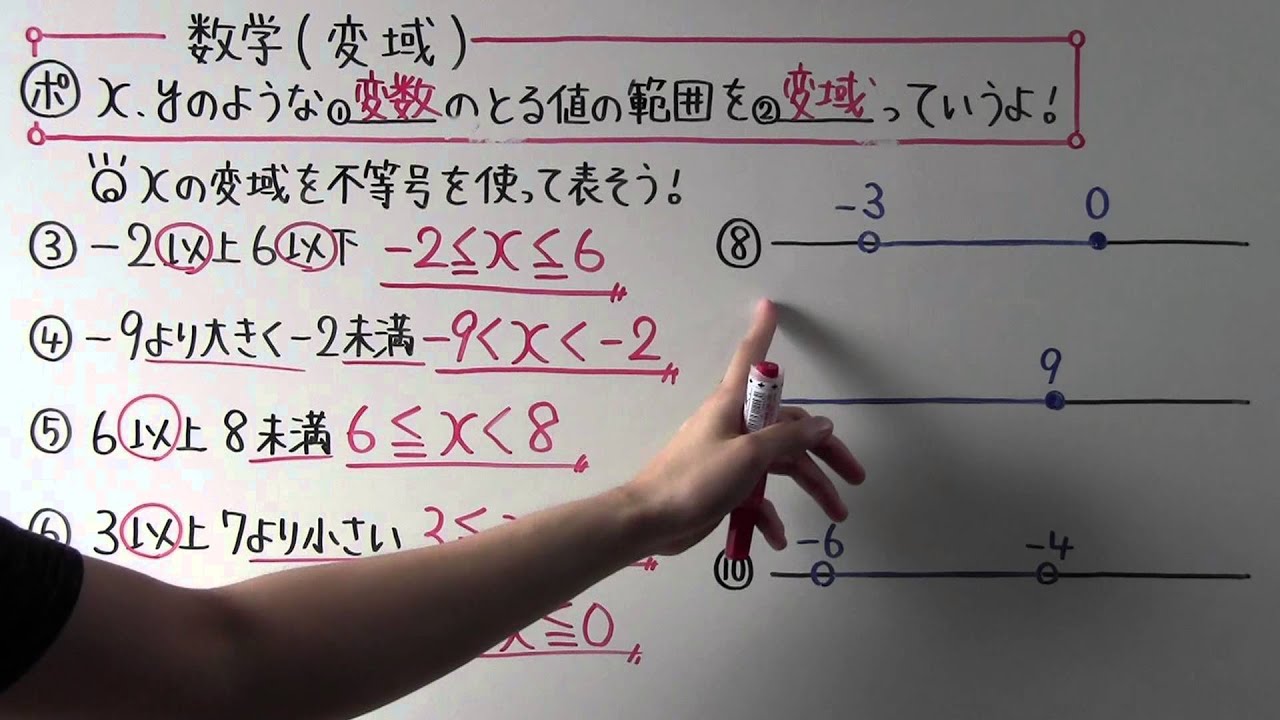 数学(変域)
ポ x、yのような①変数のとる値の範囲を②変域っていうよ!
xの変域を不等号を使って表そう!
③ -2以上6以下 -2≦x≦6
④ -9より大きく-2未満 -9<x<-2
⑤ 6以上8未満 6≦x<8
⑥ 3以上7より小さい 3≦
x≦0
⑧ -3 0
9
⑩ -6 -4